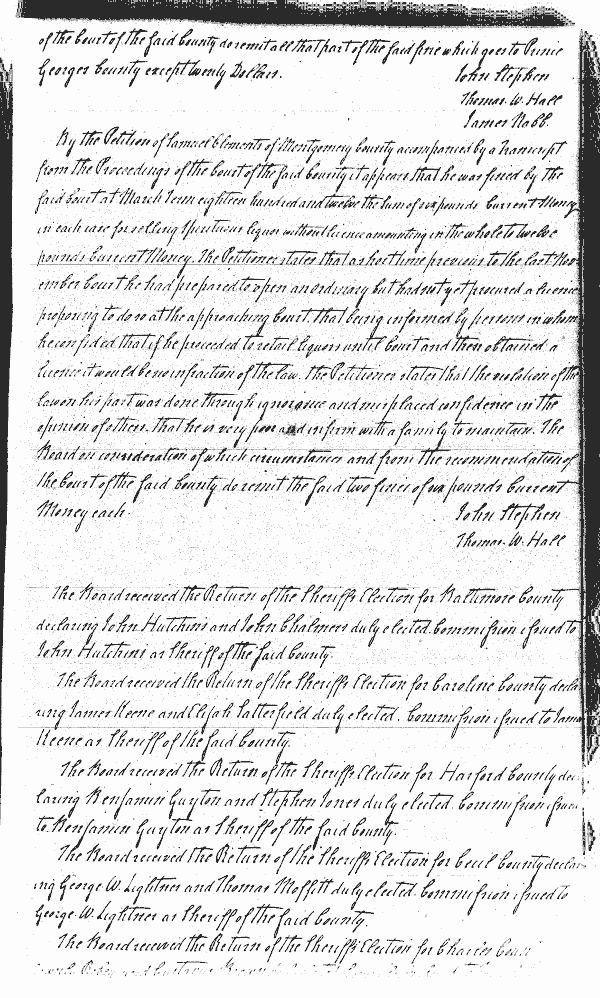 of the Court of the said County do remit all that part of the said fine which goes to Prince
Georges County except twenty Dollars.
John Stephen
Thomas. W. Hall
James Nabb.
By the Petition of Samuel Clements of Montgomery County accompanied by a Transcript
from the Proceedings of the Court of the said County it appears that he was fined by the
said Court at March Term eighteen hundred and twelve the sum of six pounds Current Money
in each case for selling Spirituous liquor without licence amounting in the whole to twelve
pounds Current Money. The Petitioner states that a short time previous to the last Nov-
ember Court he had prepared to open an ordinary but had not yet procured a licence
proposing to do so at the approaching Court. that being informed by persons in whom
he confided that if he proceeded to retail liquors until Court and then obtained a
licence it would be no infraction of the law. The Petitioner states that the violation of the
law on his part was done through ignorance and misplaced confidence in the
opinion of others. that he is very poor and infirm with a family to maintain. The
Board on consideration of which circumstances and from the recommendation of
the Court of the said County do remit the said two fines of six pounds Current
Money each.
John Stephen
Thomas. W. Hall
The Board received the Return of the Sheriffs Election for Baltimore County
declaring John Hutchins and John Chalmers duly elected. Commission issued to
John Hutchins as Sheriff of the said County.
The Board received the Return of the Sheriffs Election for Caroline County decla-
ring James Keene and Elijah Satterfield duly elected. Commission issued to James
Keene as Sheriff of the said County.
The Board received the Return of the Sheriffs Election for Harford County dec-
laring Benjamin Guyton and Stephen Jones duly elected. Commission issued
to Benjamin Guyton as Sheriff of the said County.
The Board received the Return of the Sheriffs Election for Cecil County declar-
ing George W. Lightner and Thomas Moffitt duly elected. Commission issued to
George W. Lightner as Sheriff of the said County.
The Board received the Return of the Sheriffs Election for Charles Coun